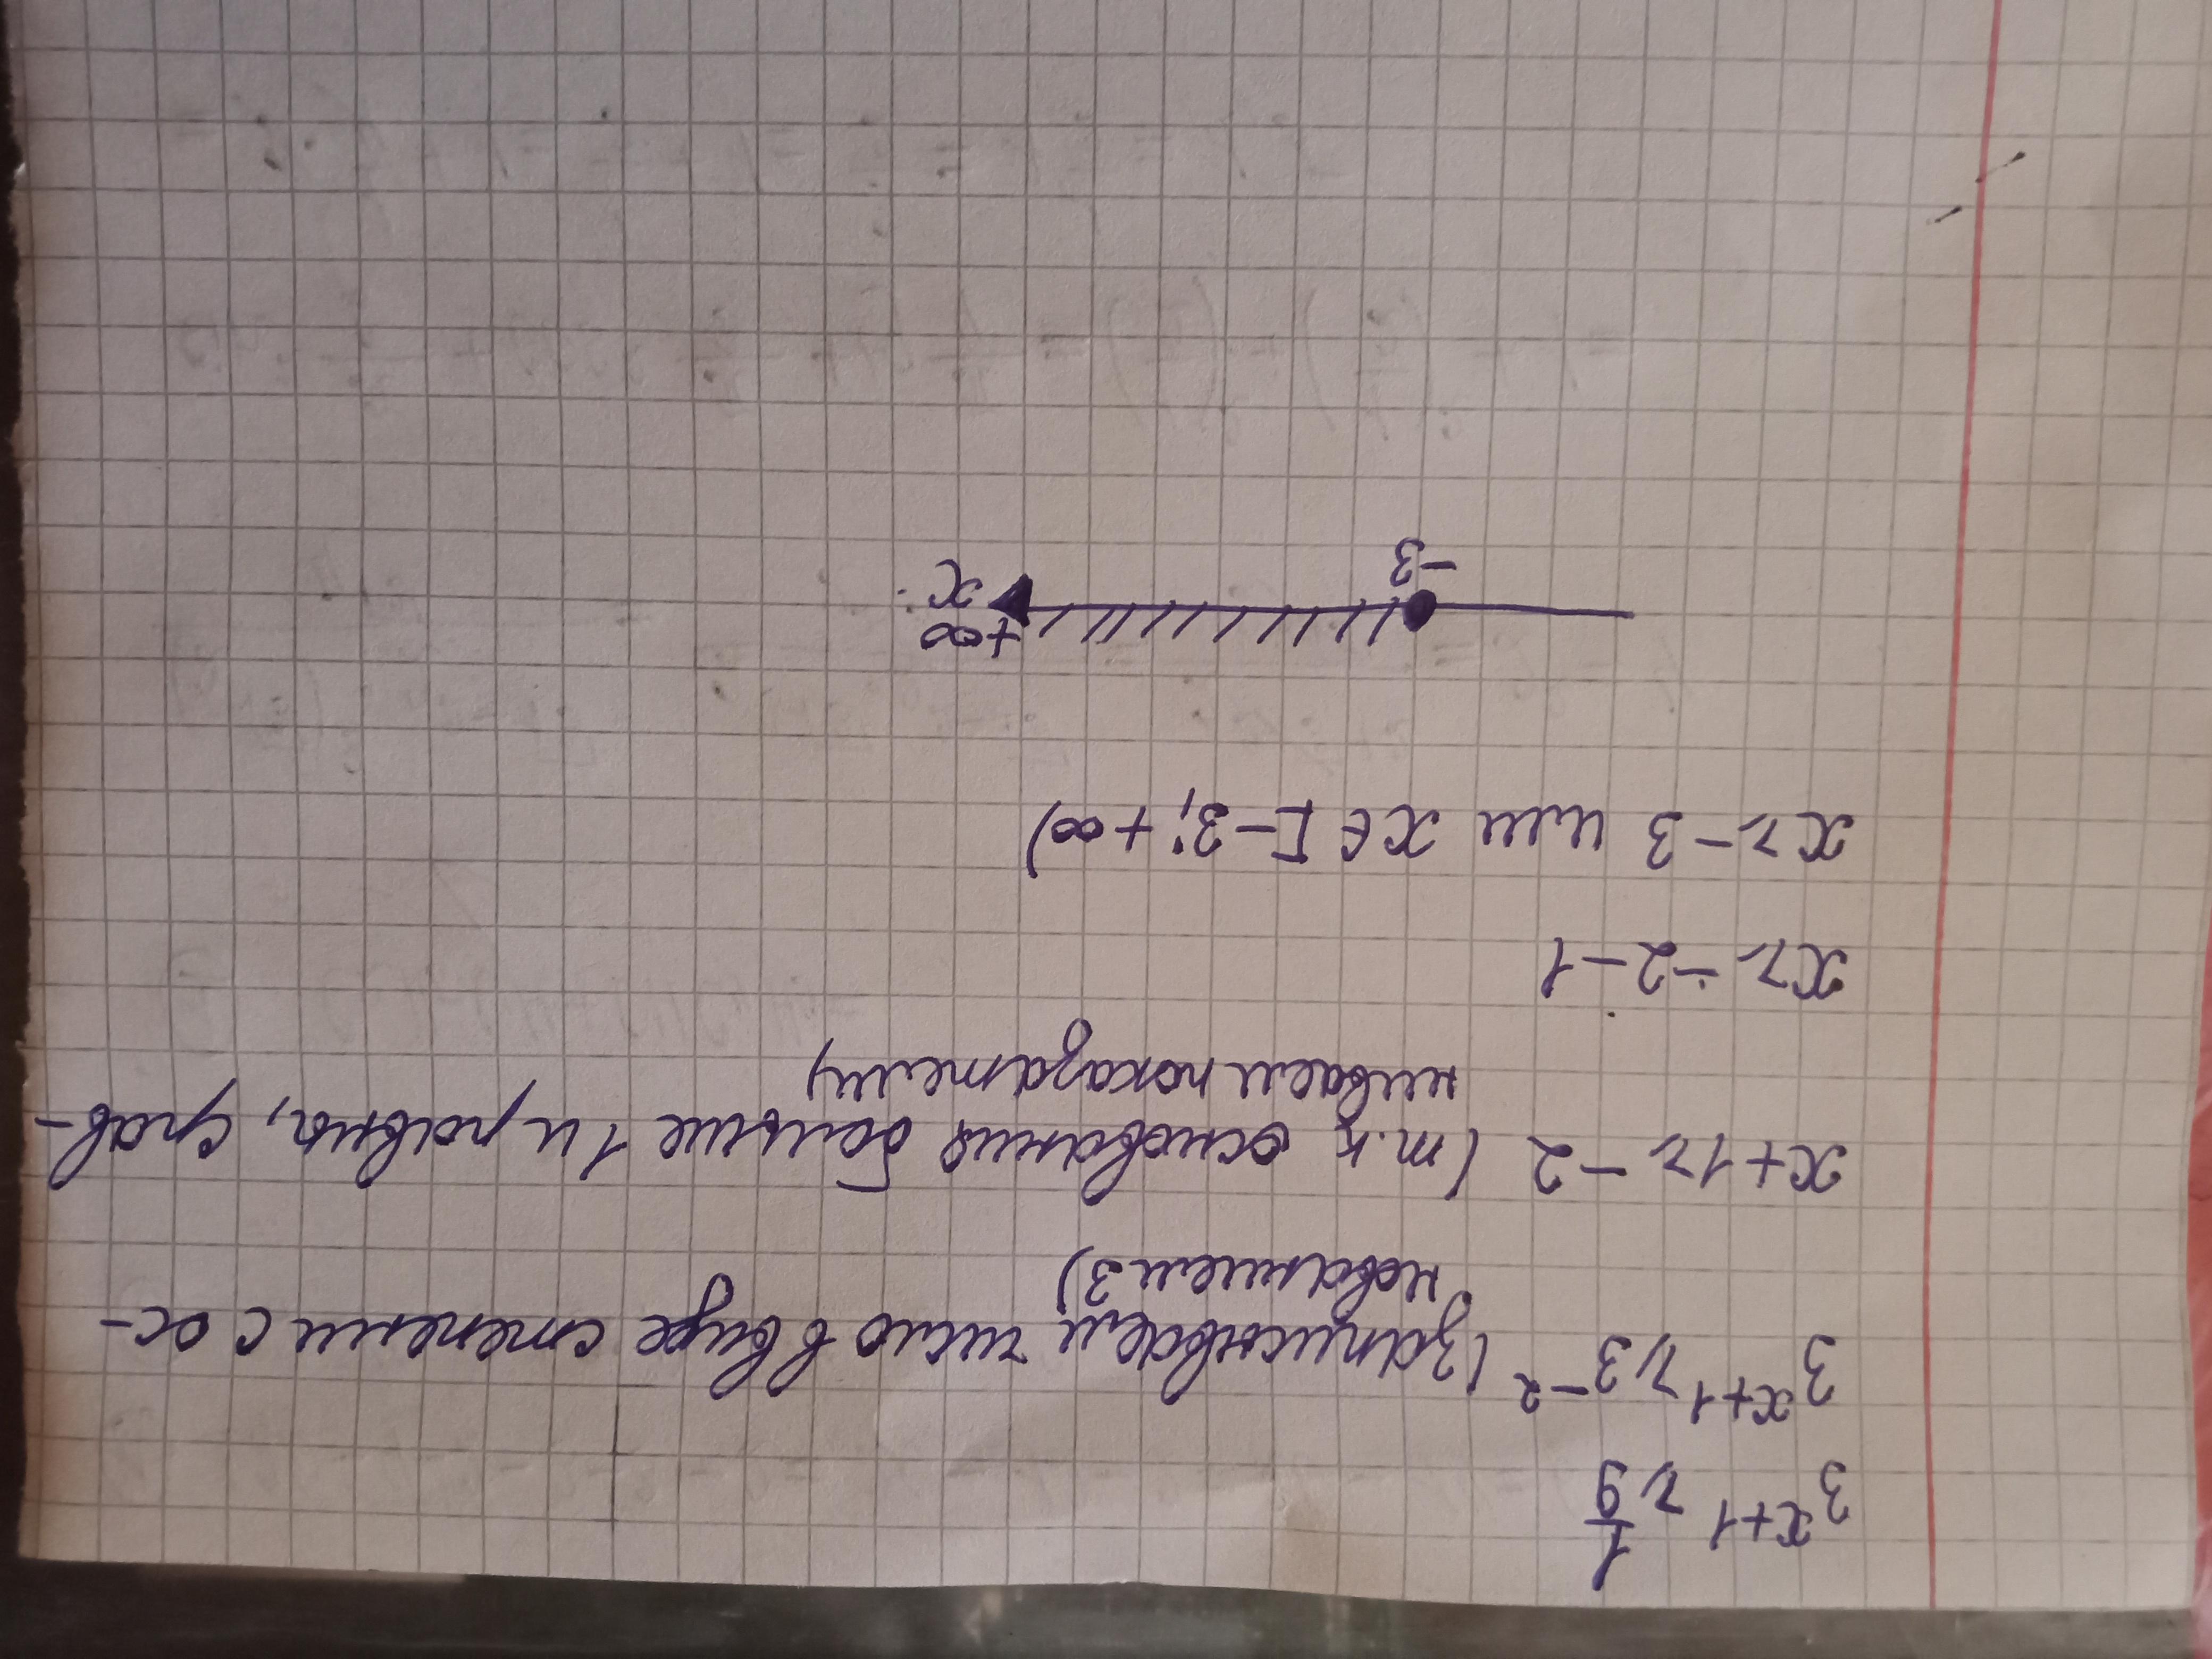 3^{x+1} ⩾ 1/9
3^{x+1} ⩾ 3^{-2} (записываем число в виде степени с ос-
нованием 3)
x+1 ⩾ -2 (т.к основания больше 1 и равны, срав-
ниваем показатели)
x ⩾ -2-1
x ⩾ -3 или x ∈ [-3; +∞)
+∞
-3 x